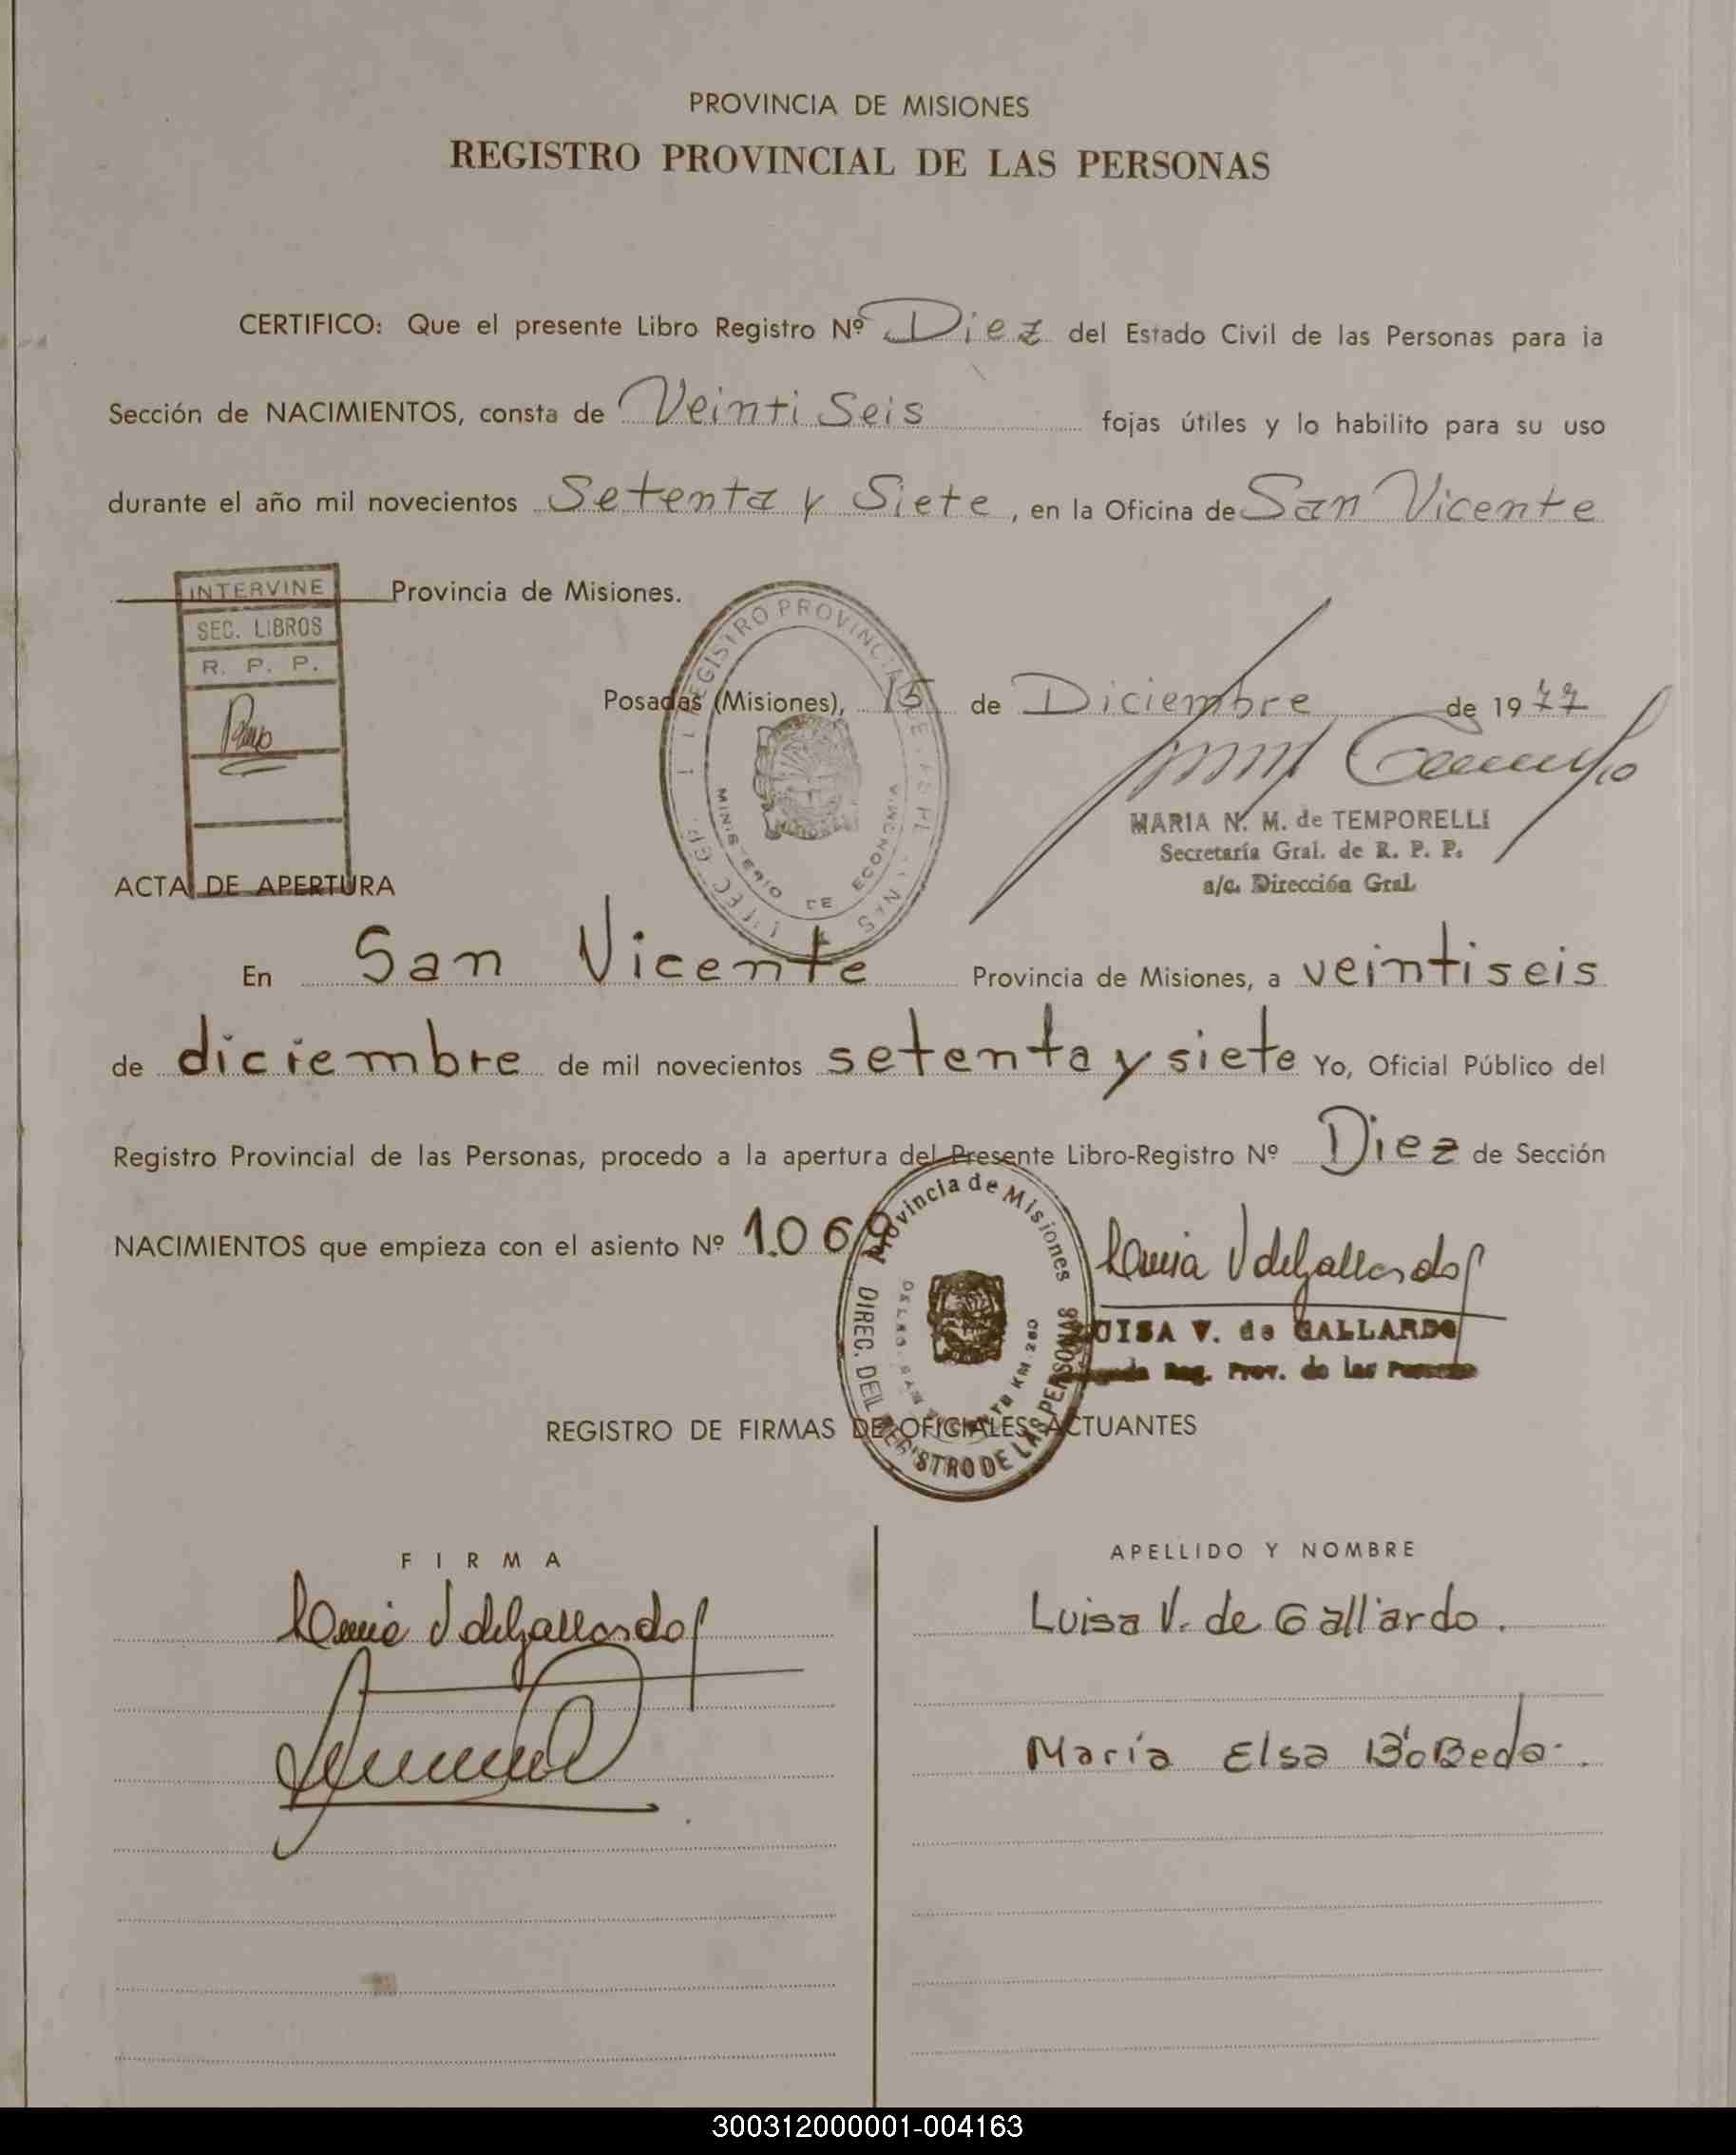 PROVINCIA DE MISIONES
REGISTRO PROVINCIAL DE LAS PERSONAS
CERTIFICO: Que el presente Libro Registro Nº Diez del Estado Civil de las Personas para la
Sección de NACIMIENTOS, consta de Veinti Seis fojas útiles y lo habilito para su uso
durante el año mil novecientos Setenta y Siete, en la Oficina de San Vicente
Provincia de Misiones.
INTERVINE
SEC. LIBROS
R. P. P.
REGISTRO PROVINCIAL
MINISTERIO DE ECONOMIA
Posadas (Misiones), 15 de Diciembre de 1977
MARIA N. M. de TEMPORELLI
Secretaría Gral. de R. P. P.
a/c. Dirección Gral.
ACTA DE APERTURA
En San Vicente Provincia de Misiones, a veintiseis
de diciembre de mil novecientos setenta y siete Yo, Oficial Público del
Registro Provincial de las Personas, procedo a la apertura del Presente Libro-Registro Nº Diez de Sección
NACIMIENTOS que empieza con el asiento Nº 1.069
Provincia de Misiones
DIREC. DEL REGISTRO DE LAS PERSONAS
Luisa V de Gallardo
LUISA V. de GALLARDO
Reg. Prov. de las Personas
REGISTRO DE FIRMAS DE OFICIALES ACTUANTES
FIRMA
APELLIDO Y NOMBRE
Luisa V de Gallardo
Luisa V. de Gallardo.
María Elsa BoBeda.
300312000001-004163